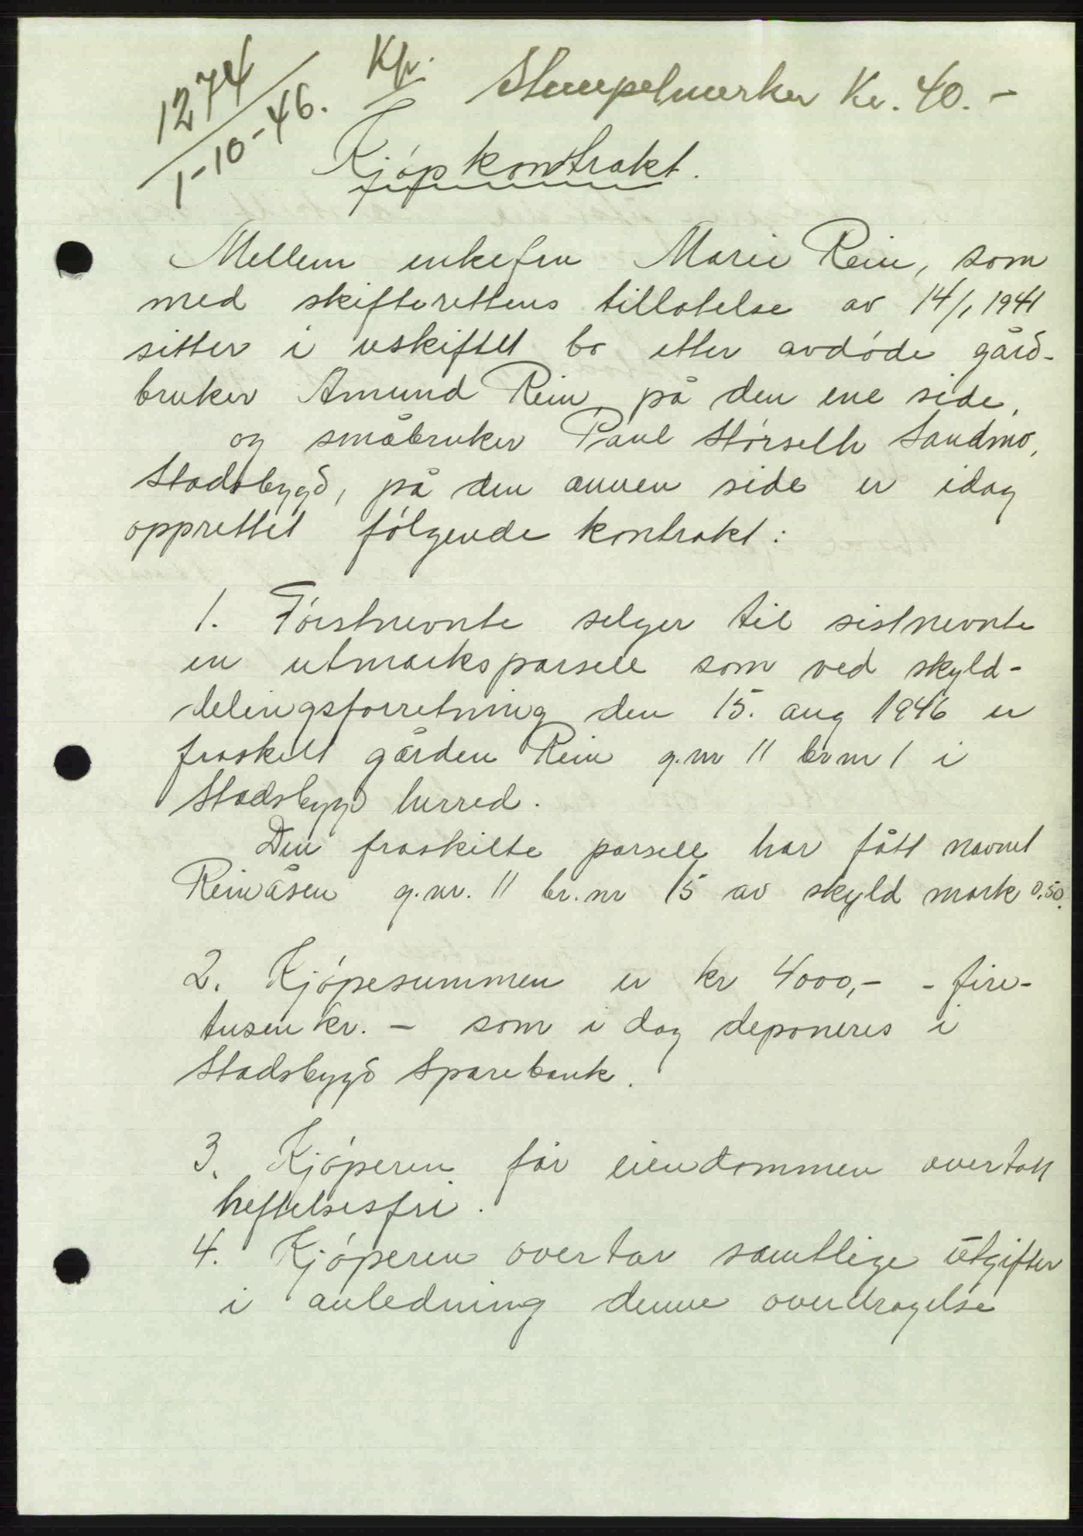 1274
1-10-46.
Kfr.
Stempelmerker Kr. 40.-
Kjøpkontrakt.
Mellem enkefru Marie Rein, som
med skifterettens tillatelse av 14/1 1941
sitter i uskiftet bo etter avdøde gård-
bruker Amund Rein på den ene side,
og småbruker Paul Størseth Sandmo,
Stadsbygd, på den annen side er idag
opprettet følgende kontrakt:
1. Førstnevnte selger til sistnevnte
en utmarksparsell som ved skyld-
delingsforretning den 15. aug 1946 er
fraskilt gården Rein g.nr 11 br.nr 1 i
Stadsbygd herred.
Den fraskilte parsell har fått navnet
Reinåsen g.nr. 11 br.nr 15 av skyld mark 0,50.
2. Kjøpesummen er kr 4000,- - fire-
tusen kr. - som i dag deponeres i
Stadsbygd Sparebank.
3. Kjøperen får eiendommen overtatt
heftelsesfri.
4. Kjøperen overtar samtlige utgifter
i anledning denne overdragelse